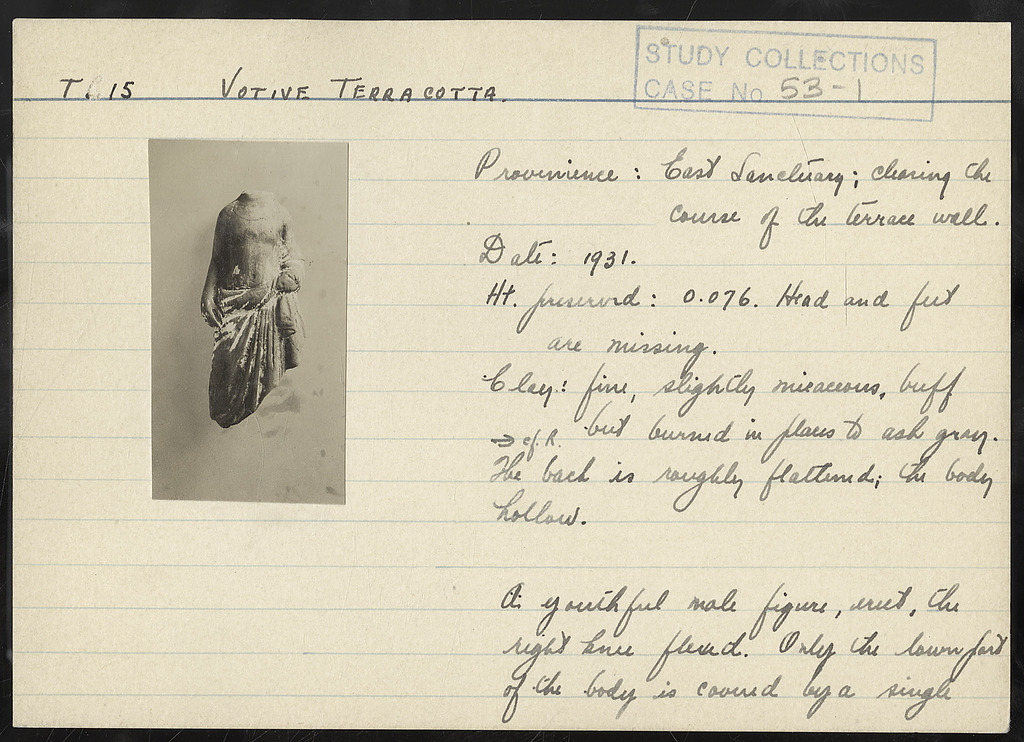 STUDY COLLECTIONS
CASE No 53-1
T. 15 VOTIVE TERRACOTTA.
Provenience: East Sanctuary; clearing the
course of the terrace wall.
Date: 1931.
Ht. preserved: 0.076. Head and feet
are missing.
Clay: fine, slightly micaceous, buff
but burned in places to ash gray.
→ cf. R.
The back is roughly flattened; the body
hollow.
A youthful male figure, erect, the
right knee flexed. Only the lower part
of the body is covered by a single